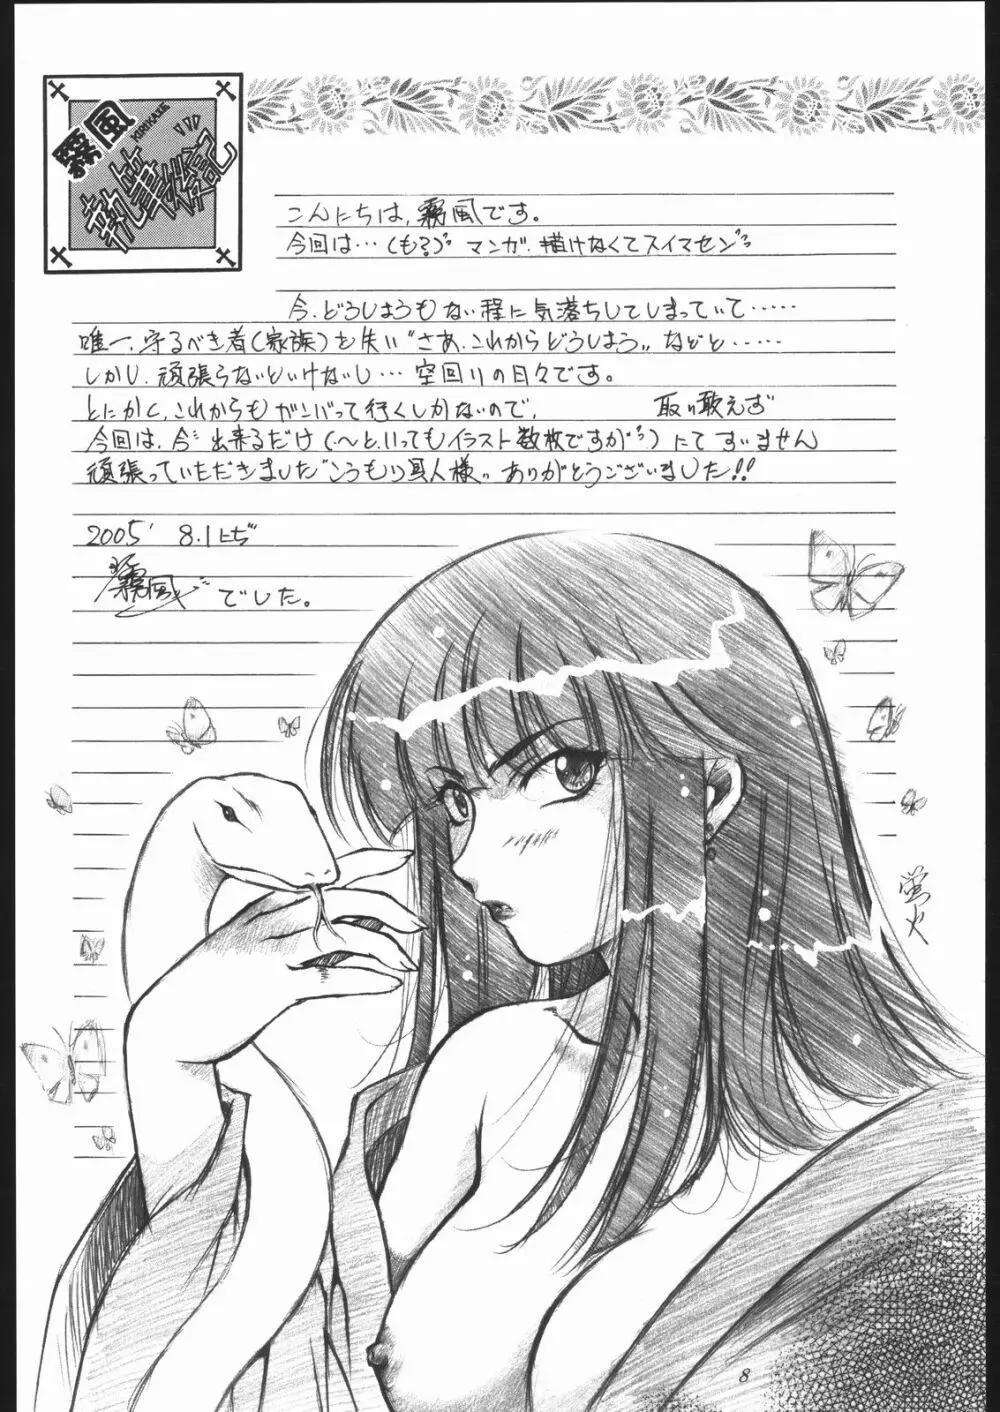 霧風
KIRIKAZE
執筆後記
こんにちは,霧風です。
今回は…(も?)゛マンガ,描けなくてスイマセン゛
今.どうしようもない程に気落ちしてしまっていて……
唯一,守るべき者(家族)を失い"さあ,これからどうしよう,,などと……
しかし,頑張らないといけないし…空回りの日々です。
とにかく,これからもガンバって行くしかないので, 取り敢えず
今回は,今゛出来るだけ(〜と,いってもイラスト数枚ですが゛)にてすいません
頑張っていただきました"こうもり具人様,,ありがとうございました!!
2005' 8.1
霧風 でした。
蛍火
8